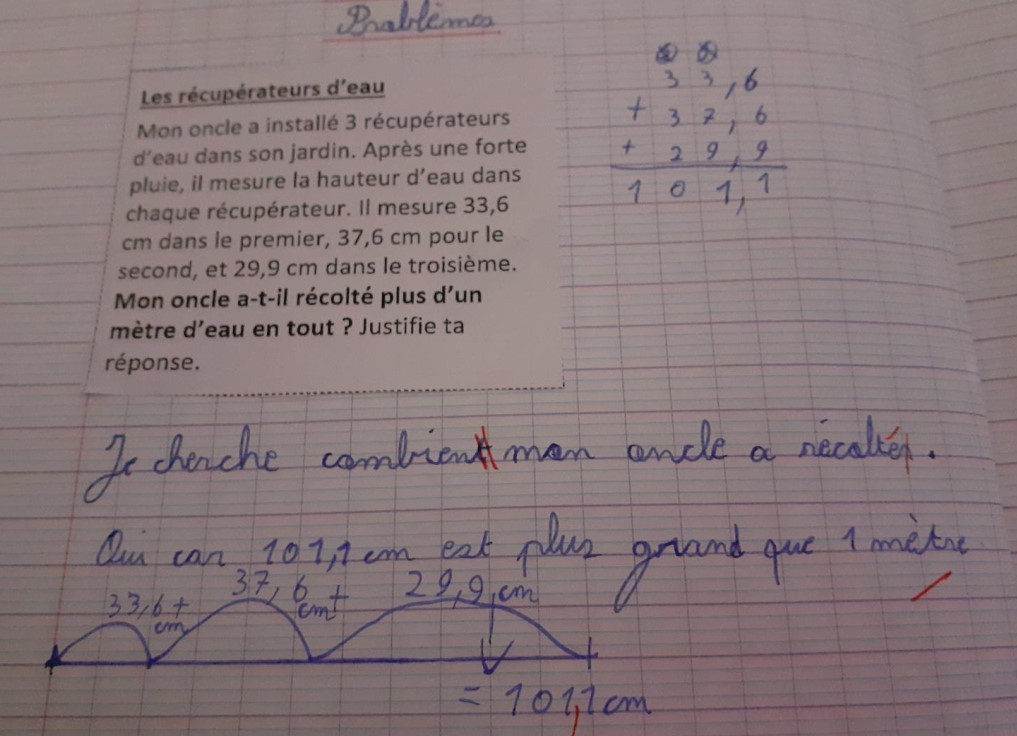 Problèmes
Les récupérateurs d'eau
Mon oncle a installé 3 récupérateurs
d'eau dans son jardin. Après une forte
pluie, il mesure la hauteur d'eau dans
chaque récupérateur. Il mesure 33,6
cm dans le premier, 37,6 cm pour le
second, et 29,9 cm dans le troisième.
Mon oncle a-t-il récolté plus d'un
mètre d'eau en tout ? Justifie ta
réponse.
33,6
+ 37,6
+ 29,9
101,1
Je cherche combient mon oncle a récolté.
Oui car 101,1 cm est plus grand que 1 mètre
33,6 cm + 37,6 cm + 29,9 cm
= 101,1 cm